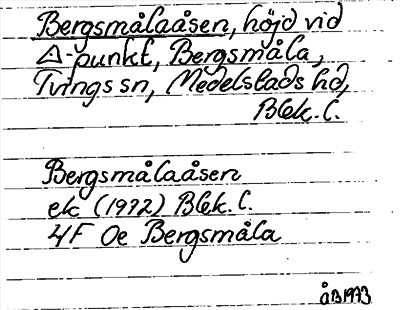 Bergsmålaåsen, höjd vid
△-punkt, Bergsmåla,
Tvings sn, Medelstads hd,
Blek. l.
Bergsmålaåsen
ek (1972) Blek. l.
4F 0e Bergsmåla
åB1973